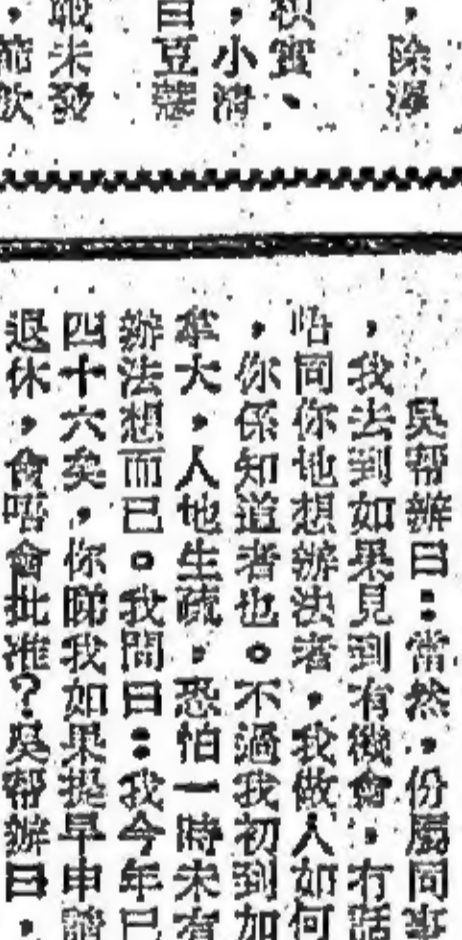 ，除
實、
，小
豆
未發
，節飲
吳帮辦曰：當然，份屬同事
，我去到如果見到有機會，冇話
唔同你地想辦法者，我做人如何
，你係知道者也。不過我初到加
拿大，人地生疏，恐怕一時未有
辦法想而已。我問曰：我今年已
四十六矣，你睇我如果提早申請
退休，會唔會批准？吳帮辦曰，